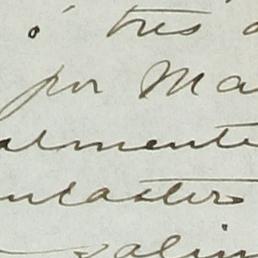 ó tres
por Ma
almente
ncaster
salin